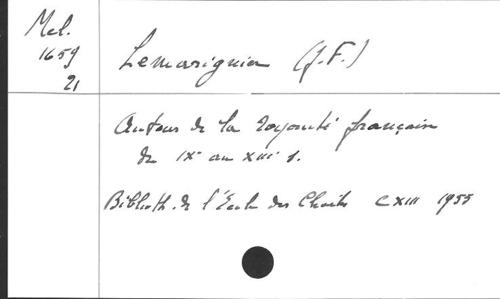 Mel.
1659
21
Lemarignier (J.F.)
Autour de la royauté française
du IXe au XIIIe s.
Biblioth. de l'École des Chartes CXIII 1955